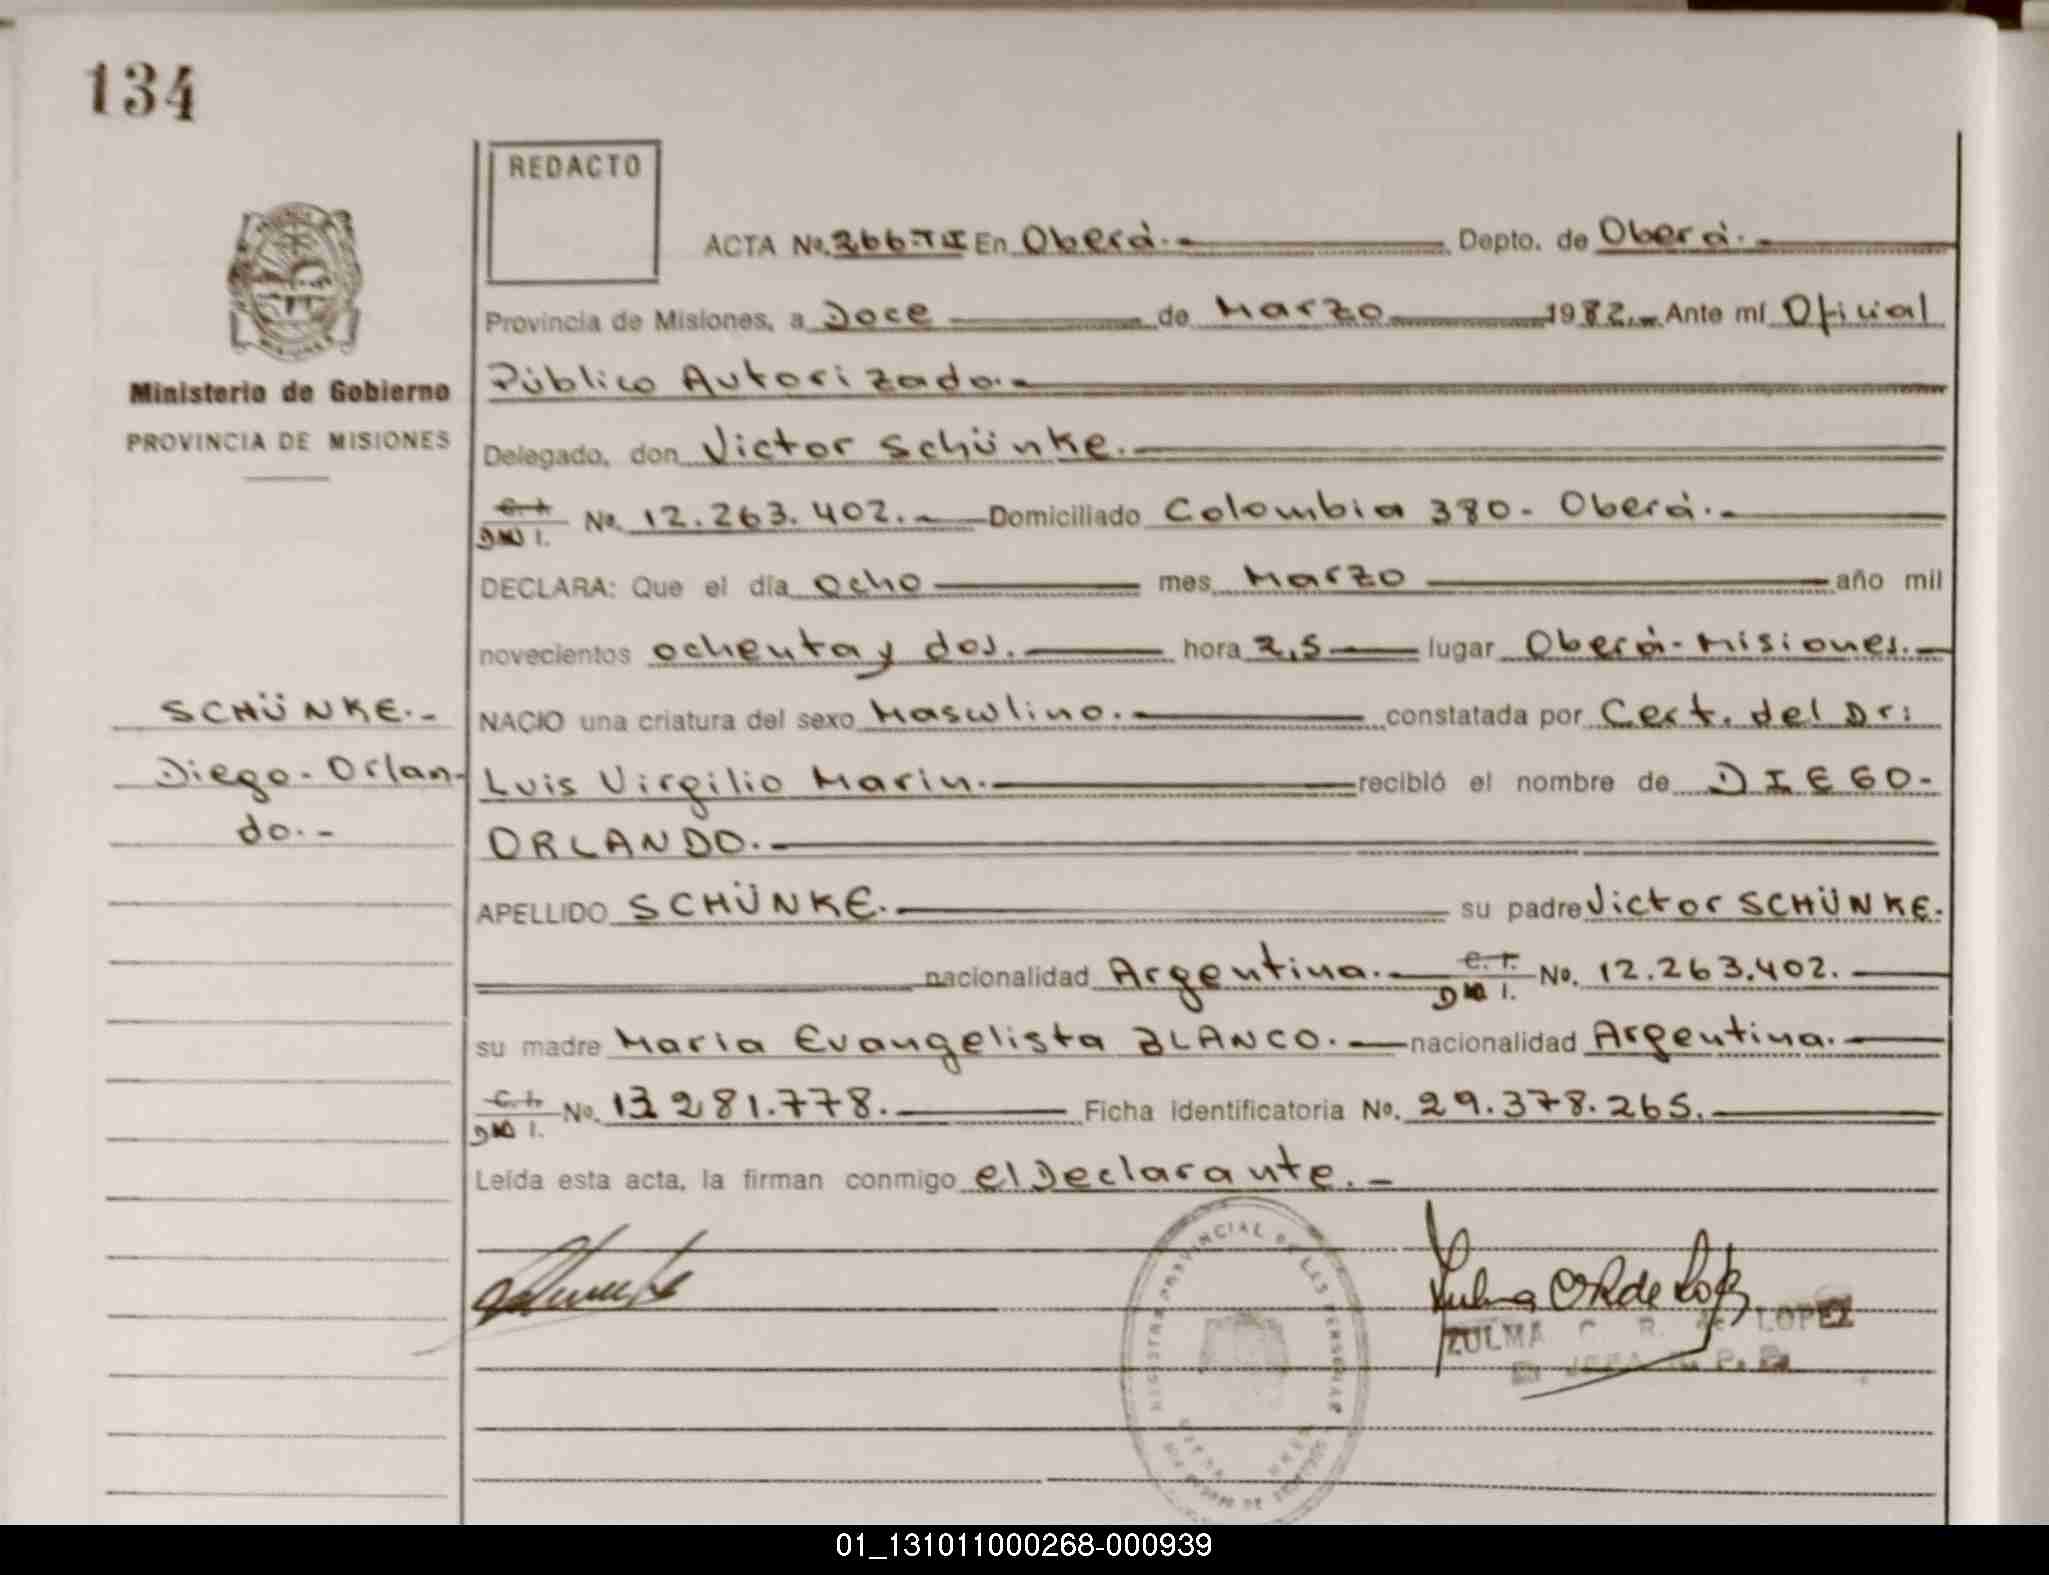 134
REDACTO
ACTA No. 266-TI En Oberá.- Depto. de Oberá.-
Provincia de Misiones, a Doce de Marzo 1982.- Ante mí Oficial
Público Autorizado.-
Ministerio de Gobierno
PROVINCIA DE MISIONES
Delegado, don Victor Schünke.-
C.I. D.N.I. No. 12.263.402.- Domiciliado Colombia 380- Oberá.-
DECLARA: Que el día ocho mes Marzo año mil
novecientos ochenta y dos.- hora 2,5 lugar Oberá-Misiones.-
SCHÜNKE.-
Diego-Orlan-
do.-
NACIO una criatura del sexo Masculino.- constatada por Cert. del Dr:
Luis Virgilio Marin.- recibió el nombre de DIEGO-
ORLANDO.-
APELLIDO SCHÜNKE.- su padre Victor SCHÜNKE.
nacionalidad Argentina.- C.I. D.N.I. No. 12.263.402.-
su madre Maria Evangelista BLANCO.- nacionalidad Argentina.-
C.I. D.N.I. No. 13 281.778.- Ficha identificatoria No. 29.378.265.-
Leída esta acta, la firman conmigo el Declarante.-
REGISTRO PROVINCIAL DE LAS PERSONAS
Zulma C R de López
ZULMA C. R. de LOPEZ
01_131011000268-000939